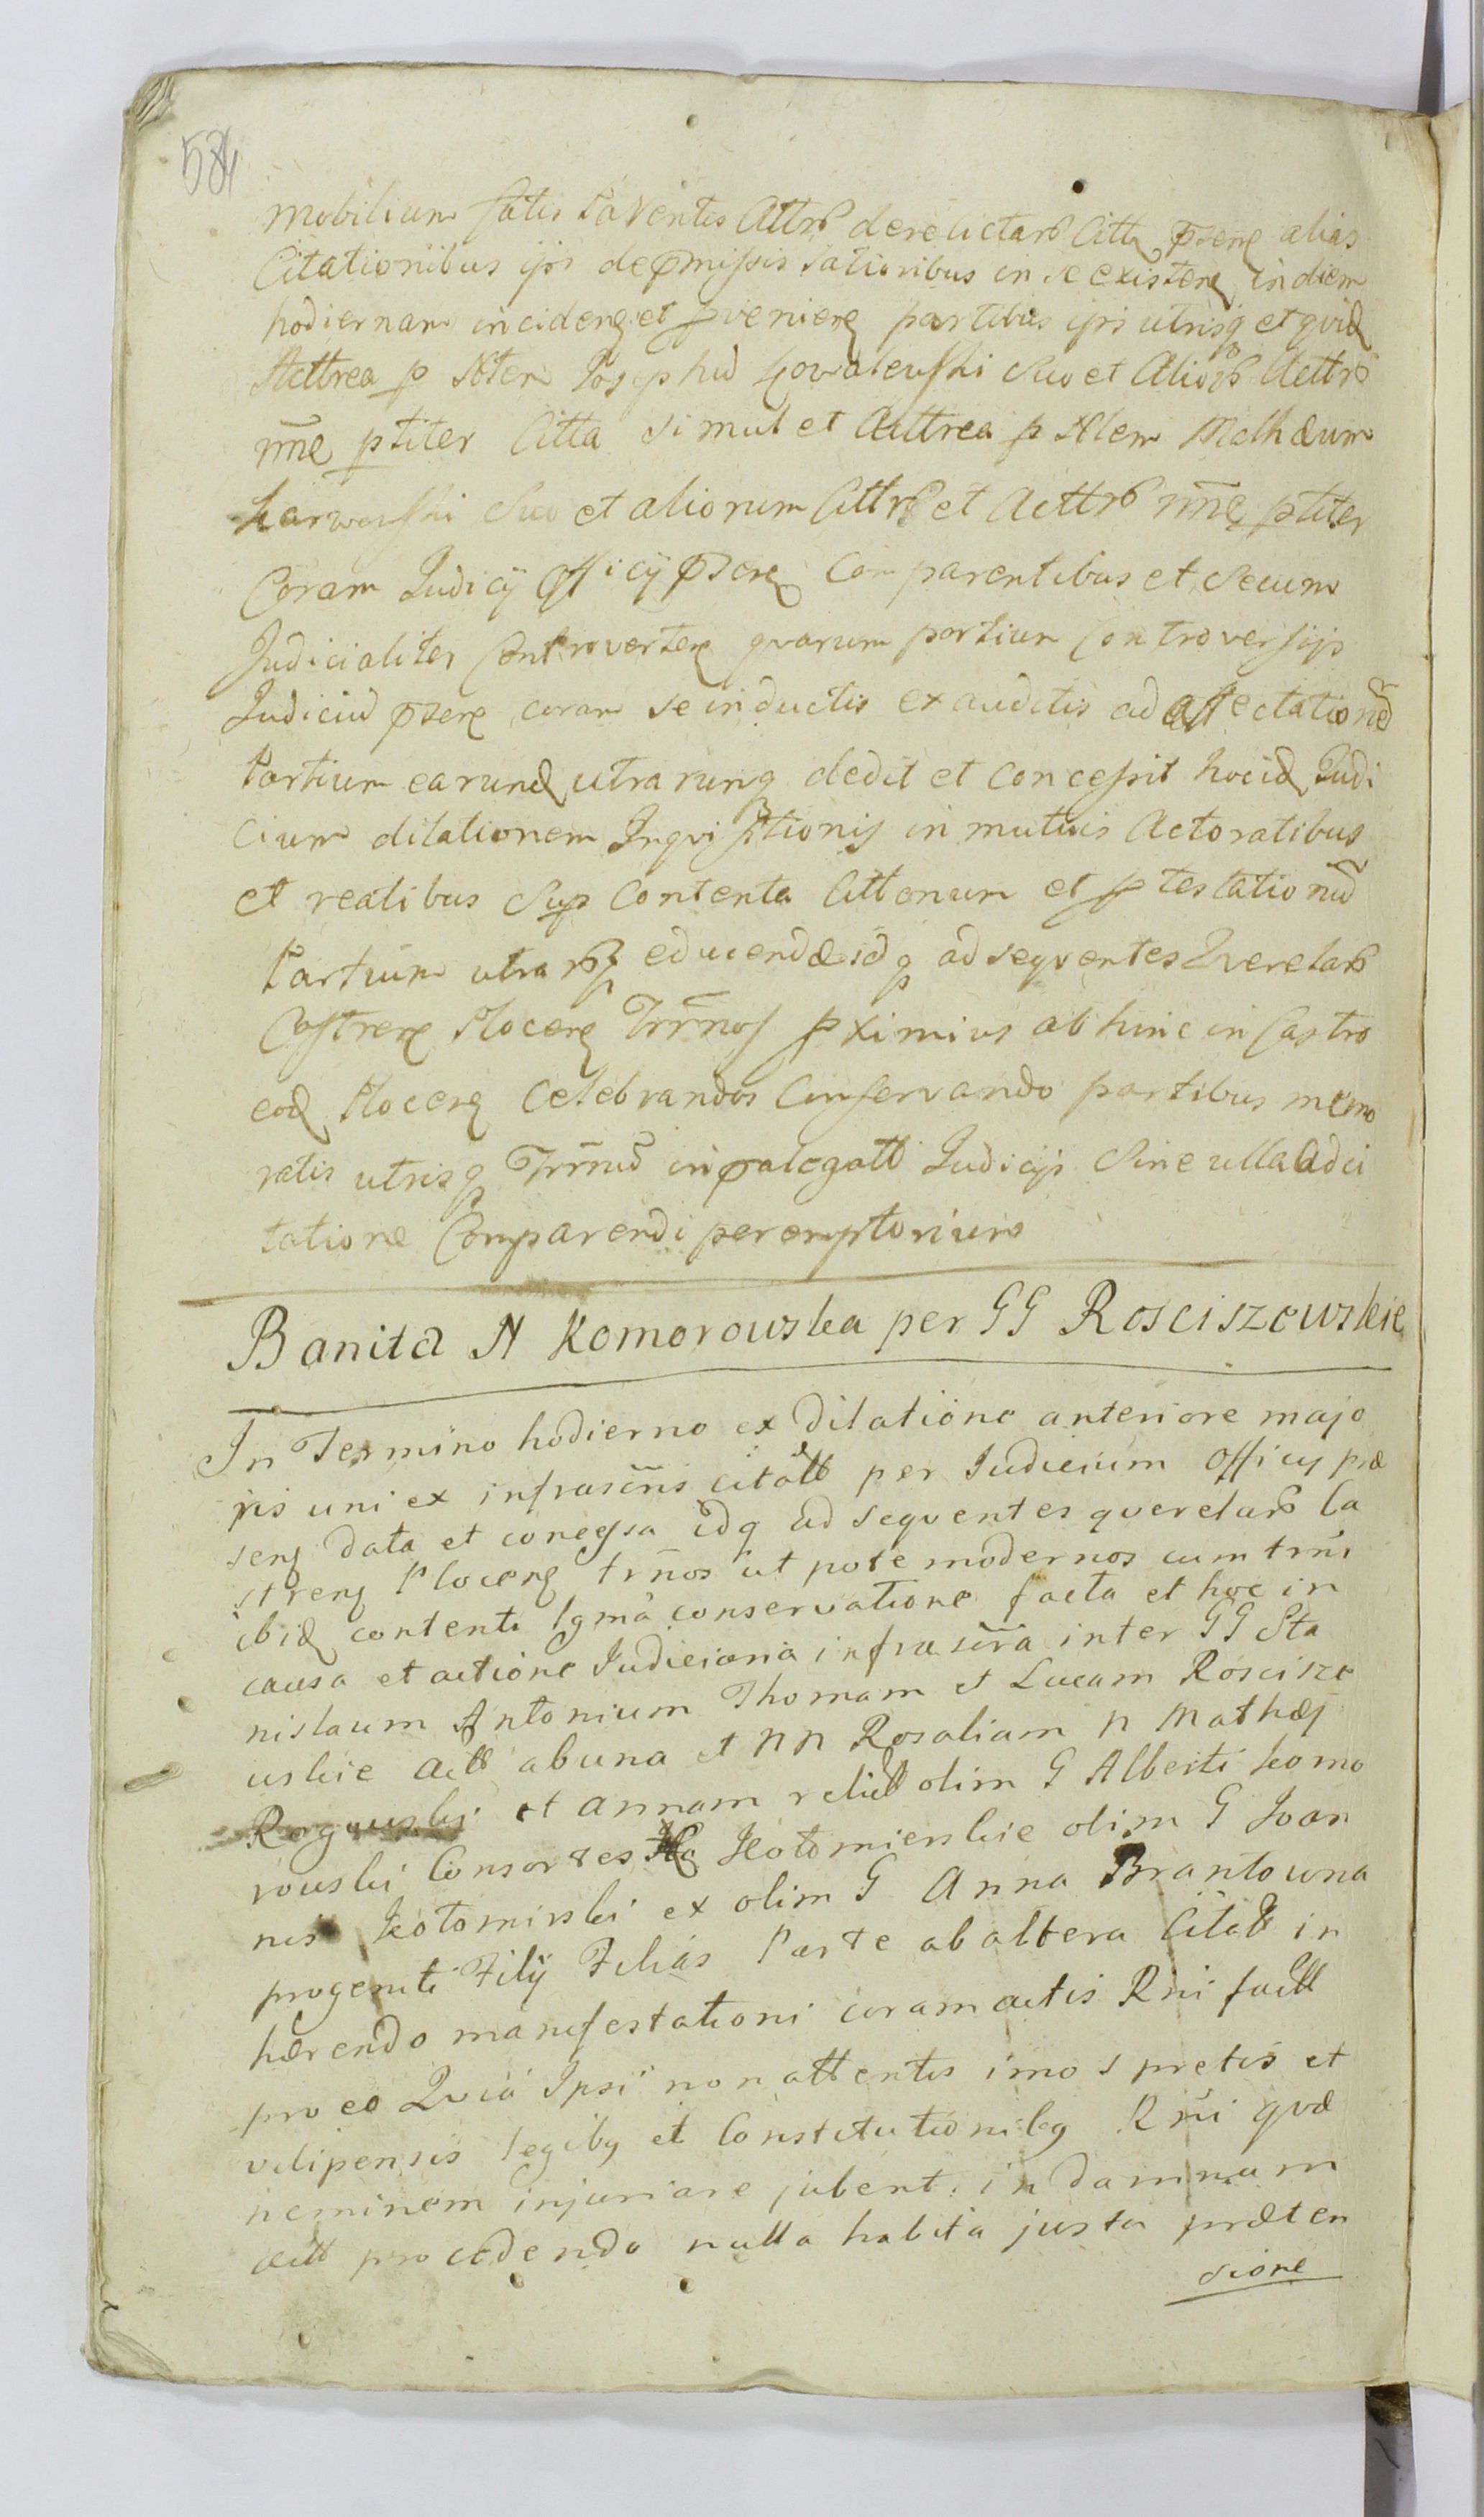 584
mobilium fatis Parentis Attrō derelictarō Citta p̄sens alias
Citationibus ijs de p̄missis rationibus in se existen in diem
hodiernam inciden et pvenien partibus ijs utrisq et quid
Acttrea p Nlem Josephū Kowalewski suo et aliorō Acttrō
nn̄e ptiter Citta simul et Acttrea p Nlem Mathæum
Karwowski suo et aliorum Cittrō et Acttrō nn̄e ptiter
Coram Judicij Officij p̄sen Comparentibus et Secum
Judicialiter Controverten quarum partium Controversijs
Judiciū p̄sens coram se inductis exauditis ad affectationē
Partium earund utrarumq dedit et concessit hocid Judi
cium dilationem Inquisitionis in mutuis Actoratibus
et reatibus Sup Contenta Cittonum et ptestationū
Partium utrarōq educendæ idq ad sequentes Querelarō
Castren Plocen Trm̄nos pximius abhinc in Castro
eod Plocen Celebrandos Conservando partibus memo
ratis utrisq Trm̄nū in p̄alegatt Judicijs Sine ulla adci
tatione Comparendi peremptorium
Banita N Komorowska per GG Rosciszewskie
In Termino hodierno ex dilatione anteriore majo
ris uni ex infrascr̄is citatt per Judicium Officij præ
sens data et concessa idq ad sequentes querelarō Ca
stren Plocen trm̄nos ut pote modernos cum trm̄i
ibid contenti Igmā conservatione facta et hoc in
causa et actione Judiciaria infrascr̄a inter GG Sta
nislaum Antonium Thomam et Lucam Roscisze
wskie Actt ab una et NN Rosaliam N Mathæj
Rogowski et Annam relict olim G Alberti Komo
rowski Consortes Kotomierskie olim G Joan
nis Kotomirski ex olim G Anna Brantowna
progeniti Filij Filias Parte ab altera Citatt in
hærendo manifestationi coram actis Rni factt
pro eo Quia Ipsi non attentis imo spretis et
vilipensis legiby et Constitutioniby Rn̄i quæ
neminem injuriare jubent. in damnum
actt procedendo nulla habita justa præten
sione